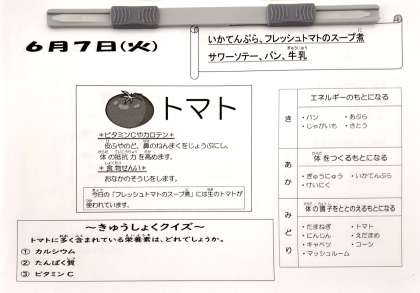 6月7日(火)
いかてんぷら、フレッシュトマトのスープ煮
サワーソテー、パン、牛乳
トマト
＊ビタミンCやカロテン＊
皮ふやのど、鼻のねんまくをじょうぶにし、
体の抵抗力を高めます。
＊食物せんい＊
おなかのそうじをします。
今日の「フレッシュトマトのスープ煮」には生のトマトが
使われています。
～きゅうしょくクイズ～
トマトに多く含まれている栄養素は、どれでしょうか。
① カルシウム
② たんぱく質
③ ビタミンC
き
エネルギーのもとになる
・パン ・あぶら
・じゃがいも ・さとう
あか
体をつくるもとになる
・ぎゅうにゅう ・いかてんぷら
・けいにく
みどり
体の調子をととのえるもとになる
・たまねぎ ・トマト
・にんじん ・えだまめ
・キャベツ ・コーン
・マッシュルーム